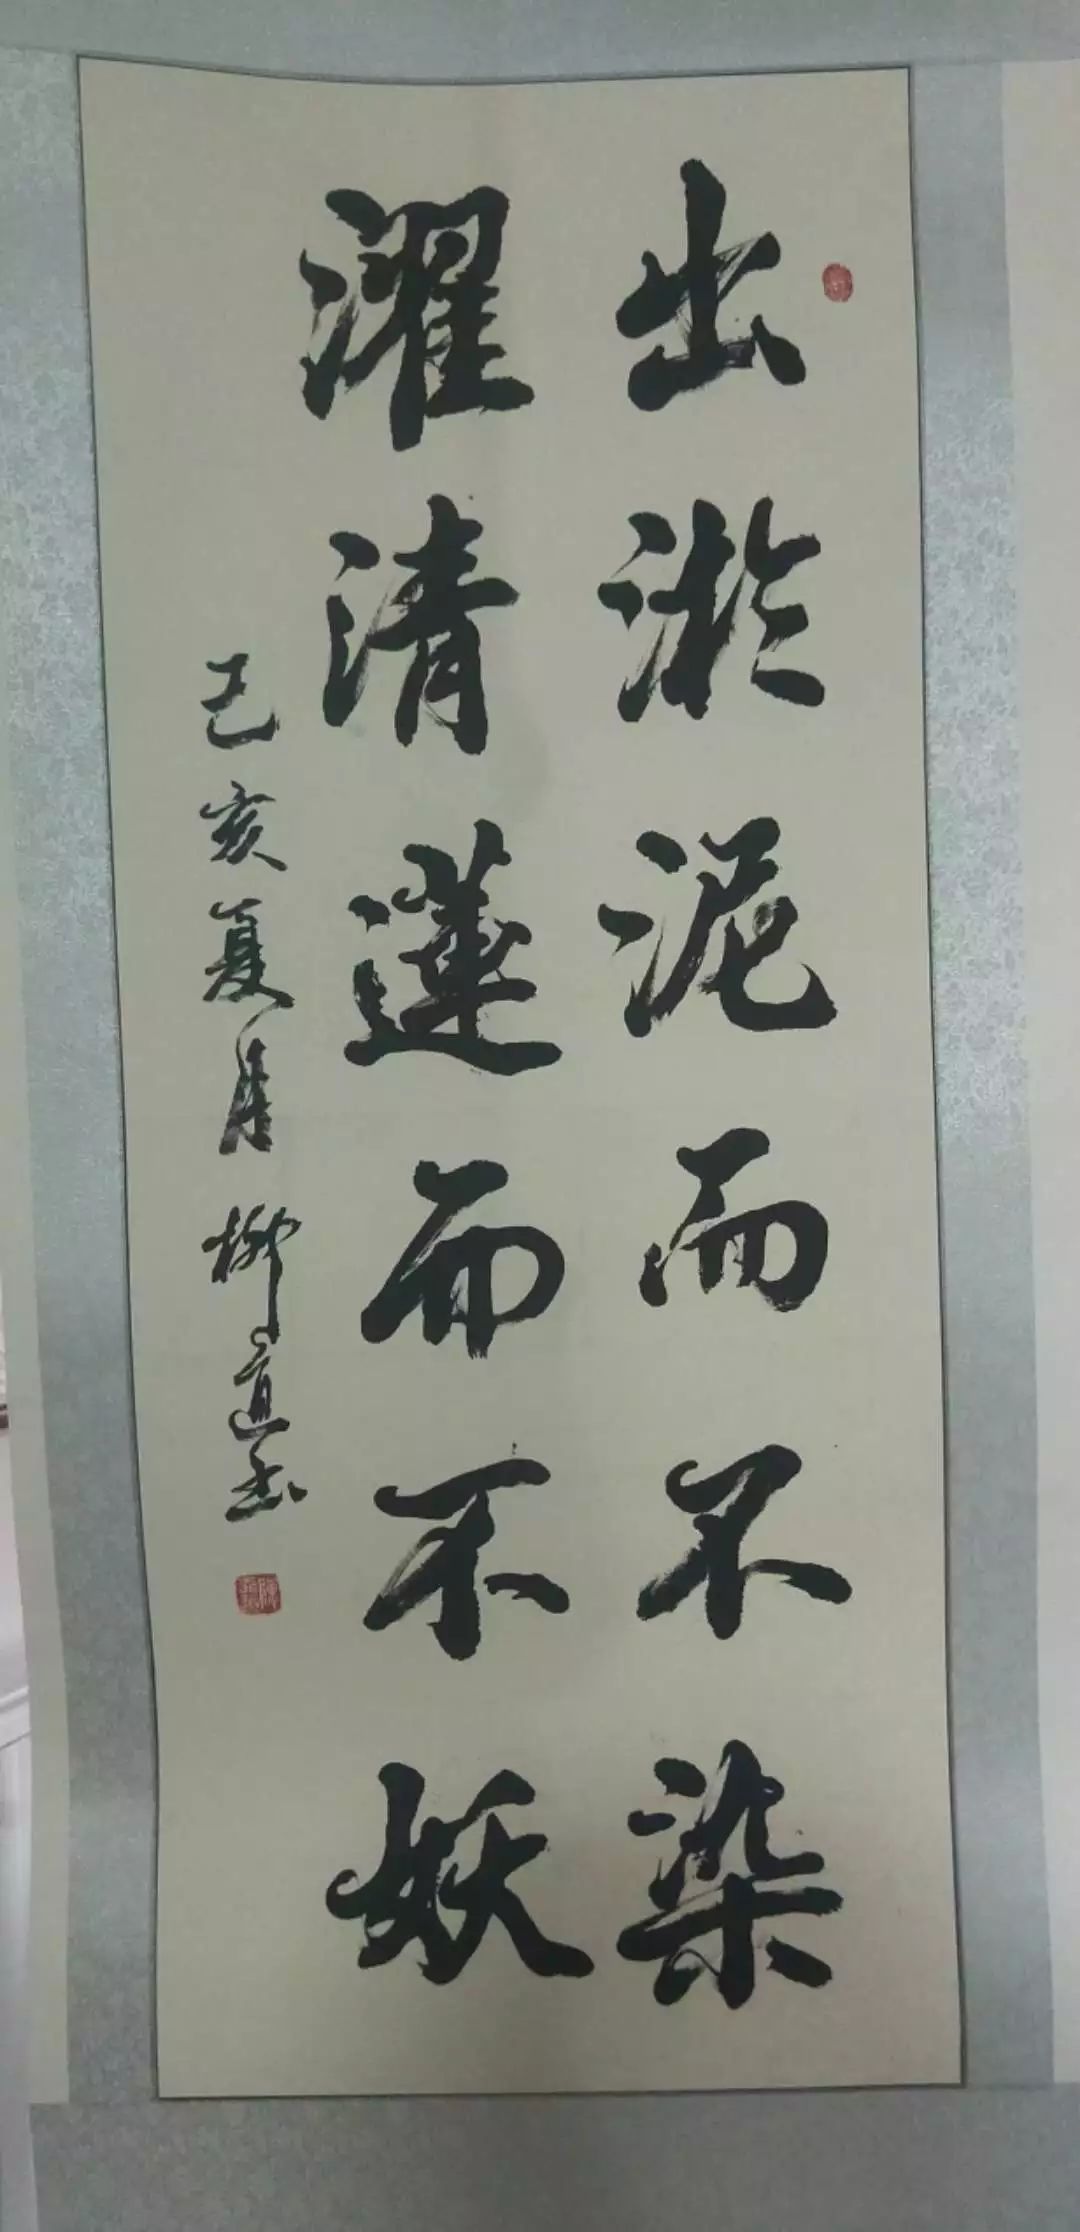 出淤泥而不染
濯清莲而不妖
己亥夏月柳直书